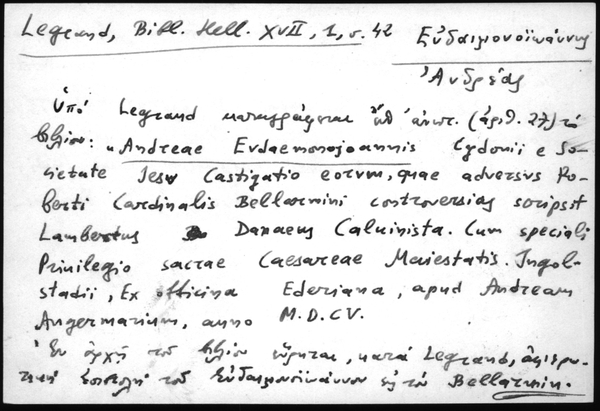 Legrand, Bibl. Hell. XVII, 1, σ. 42
Εὐδαιμονοϊωάννης
Ἀνδρέας
Ὑπό Legrand καταγράφεται ὑπ' (ἀριθ. 27) τό
βιβλίον: "Andreae Evdaemonojoannis Cydonii e So-
cietate Jesv Castigatio eorvm, quae adversvs Ro-
berti Cardinalis Bellarmini controversias scripsit
Lambertus Danaeus Caluinista. Cum speciali
Priuilegio sacrae Caesareae Maiestatis. Ingol-
stadii, Ex officina Ederiana, apud Andream
Angermarium, anno M.D.CV.
Ἐν ἀρχῇ τοῦ βιβλίου εὕρηται, κατά Legrand, ἀφιερω-
τική ἐπιστολή τοῦ Εὐδαιμονοϊωάννου εἰς τόν Bellarmin.